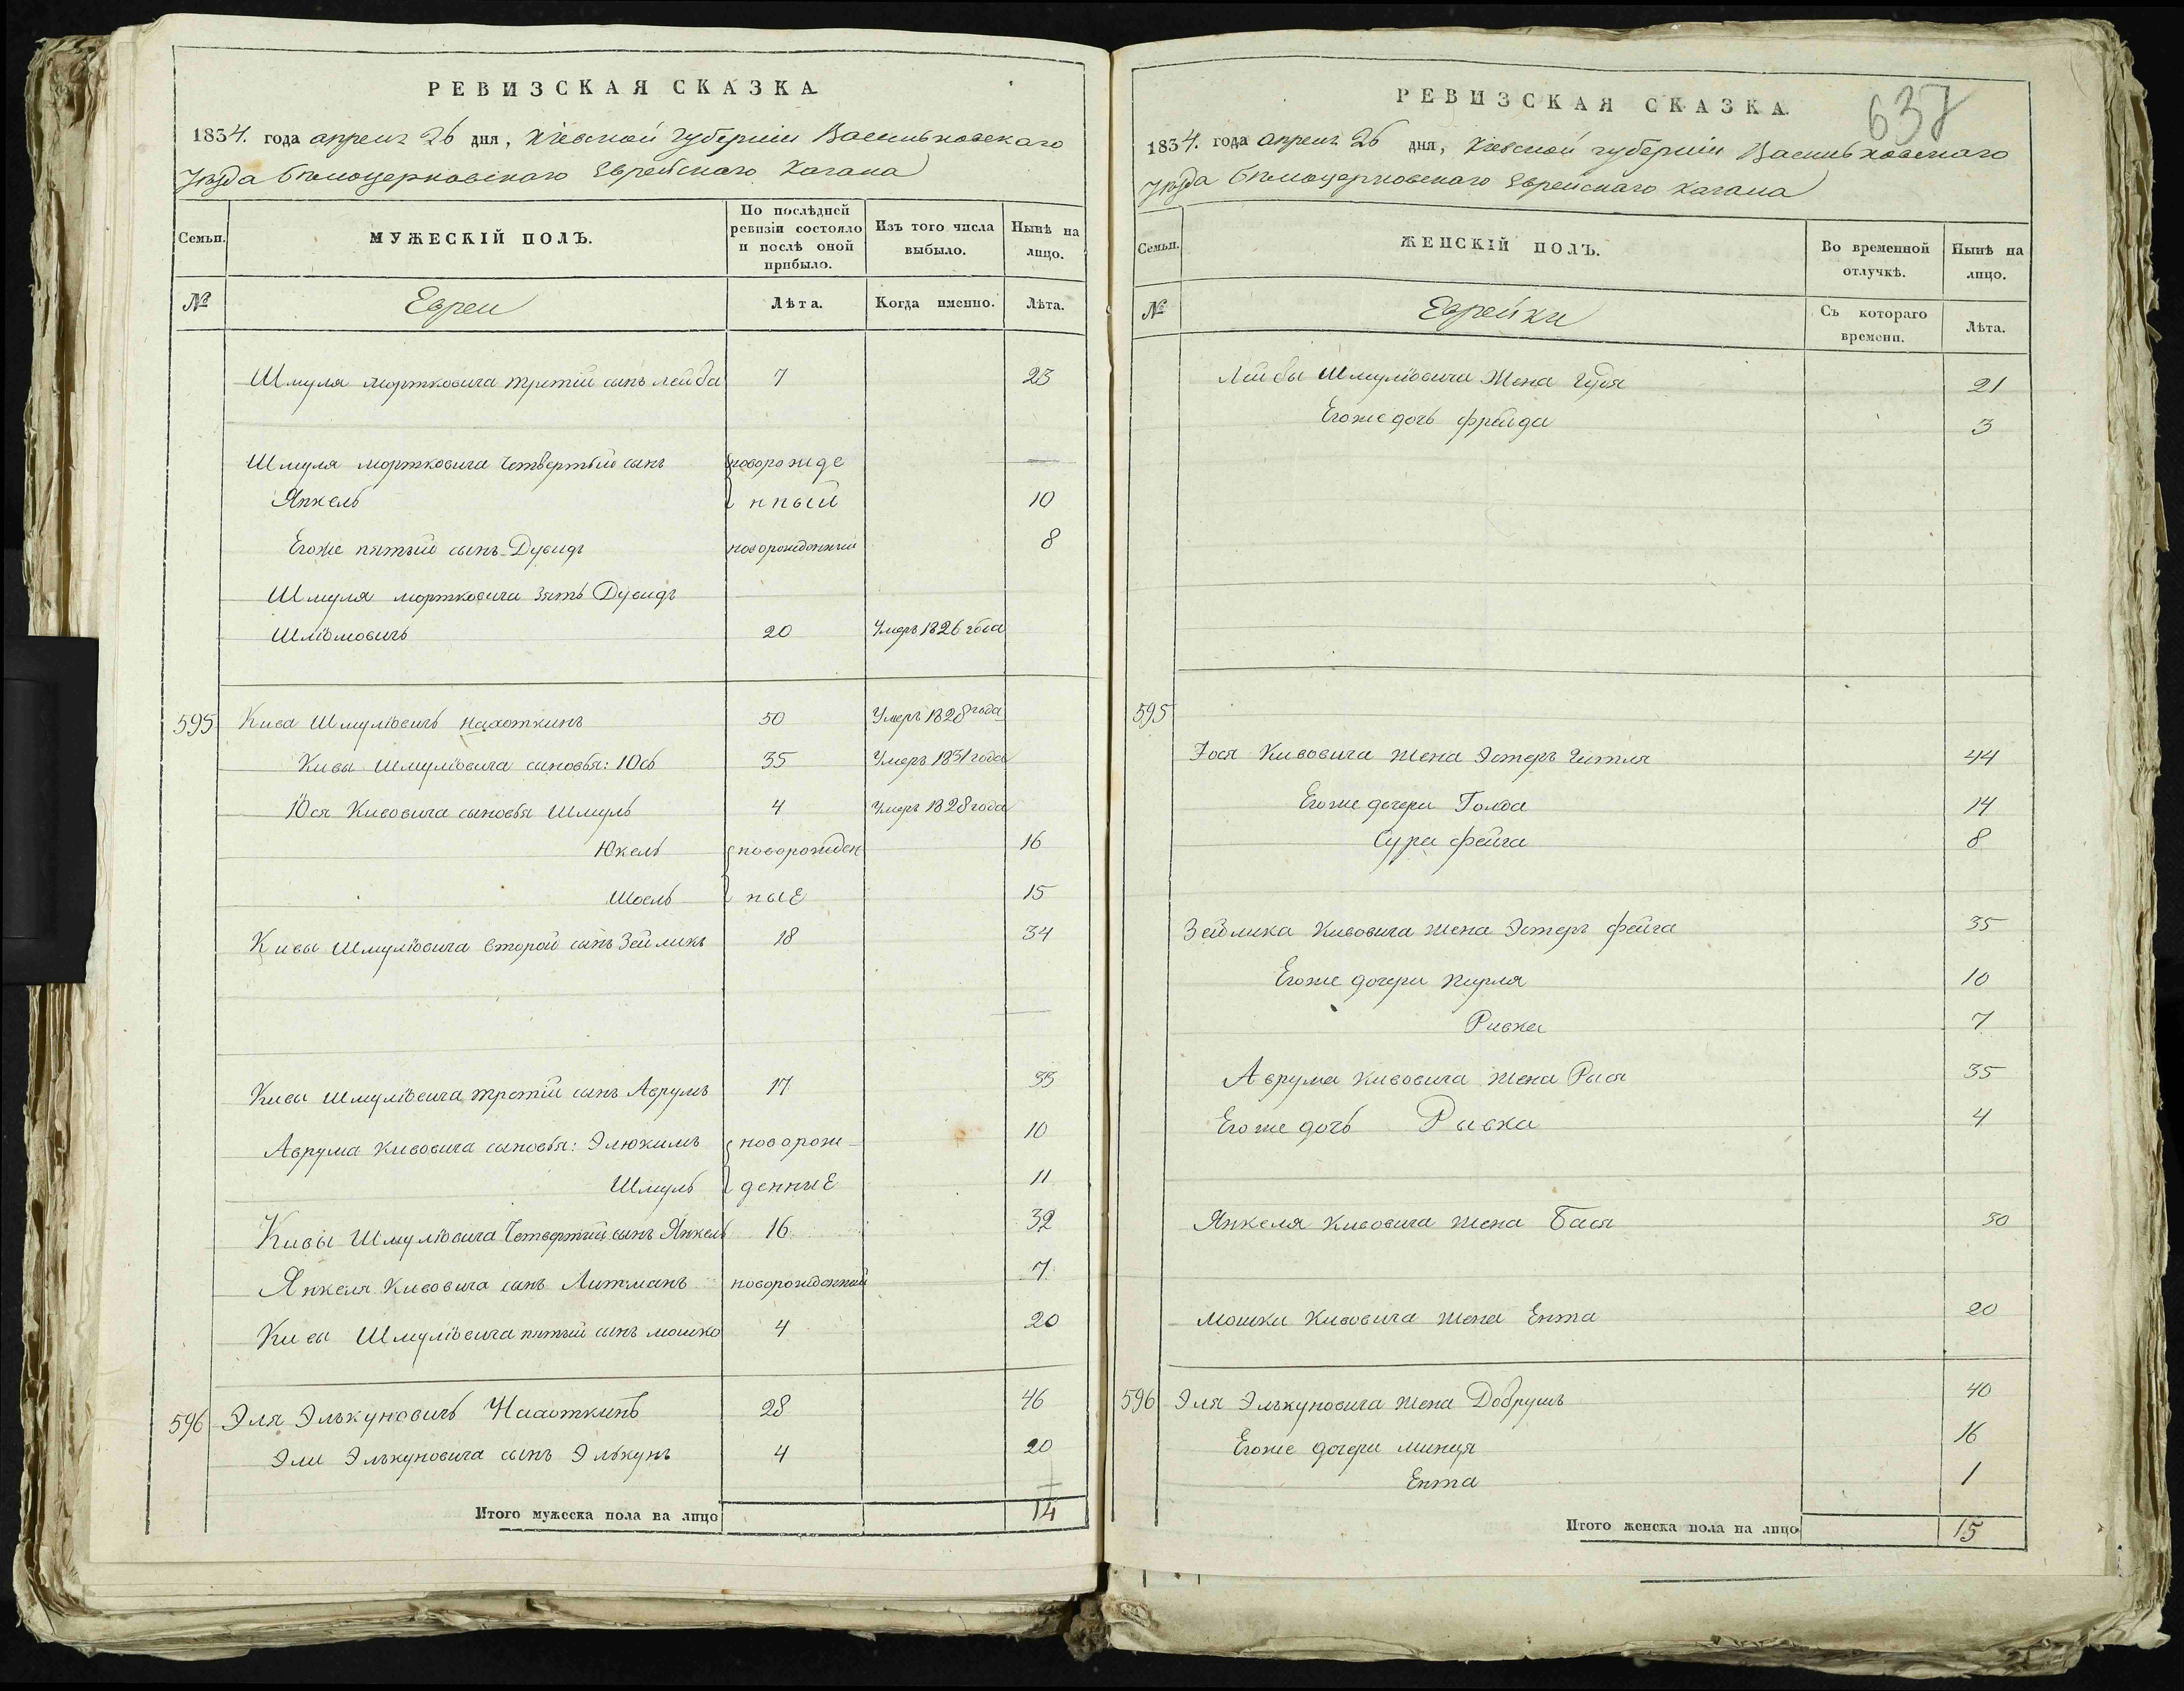 РЕВИЗСКАЯ СКАЗКА
1834. года апреля 26 дня, Кіевской губерніи Васильковскаго
Уѣзда Бѣлоцерковскаго Еврейскаго Кагала
Семьи.
МУЖЕСКІЙ ПОЛЪ.
По послѣдней
ревизіи состояло
и послѣ оной
прибыло.
Изъ того числа
выбыло.
Нынѣ на
лицо.
№
Евреи
Лѣта.
Когда именно.
Лѣта.
Шмуля Мортковича третій сынъ Лейба 7 23
Шмуля Мортковича четвертый сынъ новорожде
Янкель нный 10
Егоже пятый сынъ Дувидъ новорожденный 8
Шмуля Мортковича зять Дувидъ
Шліомовичъ 20 Умеръ 1826 года
595 Кива Шмуліовичъ 50 Умеръ 1828 года
Кивы Шмуліовича сыновья: Юсь 35 Умеръ 1831 года
Юся Кивовича сыновья Шмуль 4 Умеръ 1828 года
Юкель новорожден 16
Шоель ные 15
Кивы Шмуліовича второй сынъ Зейликъ 18 34
Кивы Шмуліовича третій сынъ Аврумъ 17 33
Аврума Кивовича сыновья: Элюкимъ новорож 10
Шмуль денные 11
Кивы Шмуліовича четвертый сынъ Янкель 16 32
Янкеля Кивовича сынъ Литманъ новорожденный 7
Кивы Шмуліовича пятый сынъ Мошко 4 20
596 Эля Элькуновичъ 28 46
Эли Элькуновича сынъ Элькунъ 4 20
Итого мужеска пола на лицо 14
637
РЕВИЗСКАЯ СКАЗКА
1834. года апреля 26 дня, Кіевской губерніи Васильковскаго
Уѣзда Бѣлоцерковскаго Еврейскаго Кагала
Семьи.
ЖЕНСКІЙ ПОЛЪ.
Во временной
отлучкѣ.
Нынѣ на
лицо.
№
Еврейки
Съ котораго
времени.
Лѣта.
Лейбы Шмуліовича жена 21
Егоже дочь Фрейда 3
595
Юся Кивовича жена Эстеръ Гитля 44
Егоже дочери Голда 14
Сура Фейга 8
Зейлика Кивовича жена Эстеръ Фейга 35
Егоже дочери Перля 10
Ривка 7
Аврума Кивовича жена Рася 35
Егоже дочь Ривка 4
Янкеля Кивовича жена Бася 30
Мошки Кивовича жена Ента 20
596 Эля Элькуновича жена Добрушъ 40
Егоже дочери Минця 16
Ента 1
Итого женска пола на лицо 15